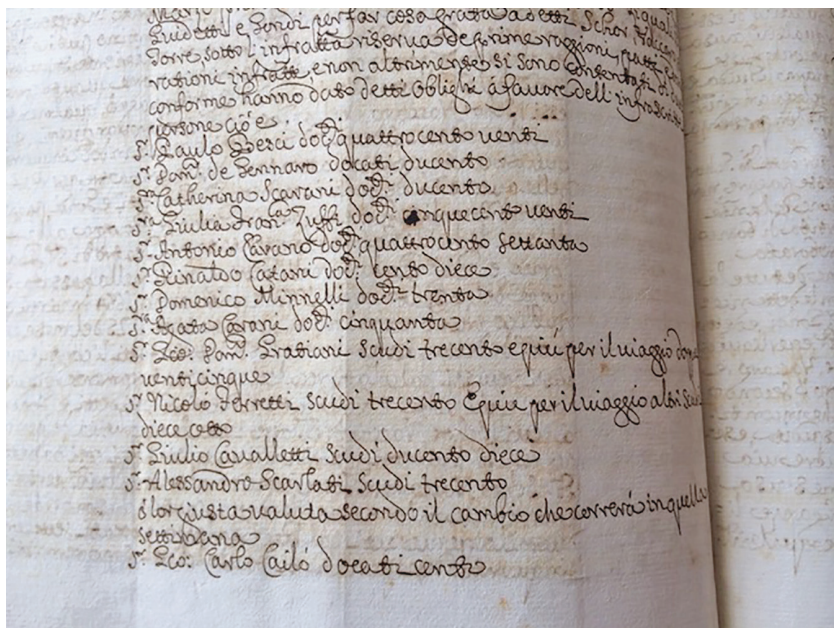 Guidetti, e Gondi per far cosa grata a detti
Torre, sotto l'infratta riserva de prime raggioni, patti
rationi infratte, e non altrimente si sono contentati di
conforme hanno dato detti Oblighi à favore dell'infrascritte
persone cioè
Sr. Paulo Pesci doti. quattrocento venti
Sr. Dom. de Gennaro docati ducento
Sra. Catherina Scavani doti. ducento
Sra. Giulia Fran.ca Zuffi doti. cinquecento venti
Sr. Antonio Cavano doti. quattrocento settanta
Sr. Rinaldo Catani doti. cento diece
Sr. Domenico Minnelli doti. trenta
Sra. Agata doti. cinquanta
Sr. Leo: Dom. Gratiani scudi trecento e più per il viaggio
venticinque
Sr. Nicolò Ferretti scudi trecento E più per il viaggio altri
diece otto
Sr. Giulio Cavalletti scudi ducento diece
Sr. Alessandro Scarlatti scudi trecento
ò lor giusta valuta secondo il cambio che correrà in quella
settimana
Sr. Leo: Carlo Cailò docati cento